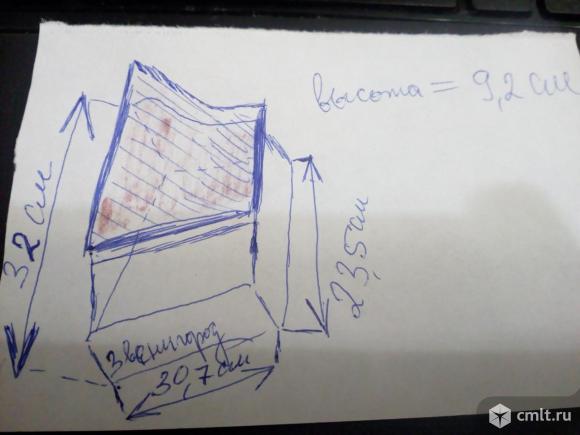 высота = 9,2 см
32 см
23,5 см
Званигород
30,7 см
cmlt.ru